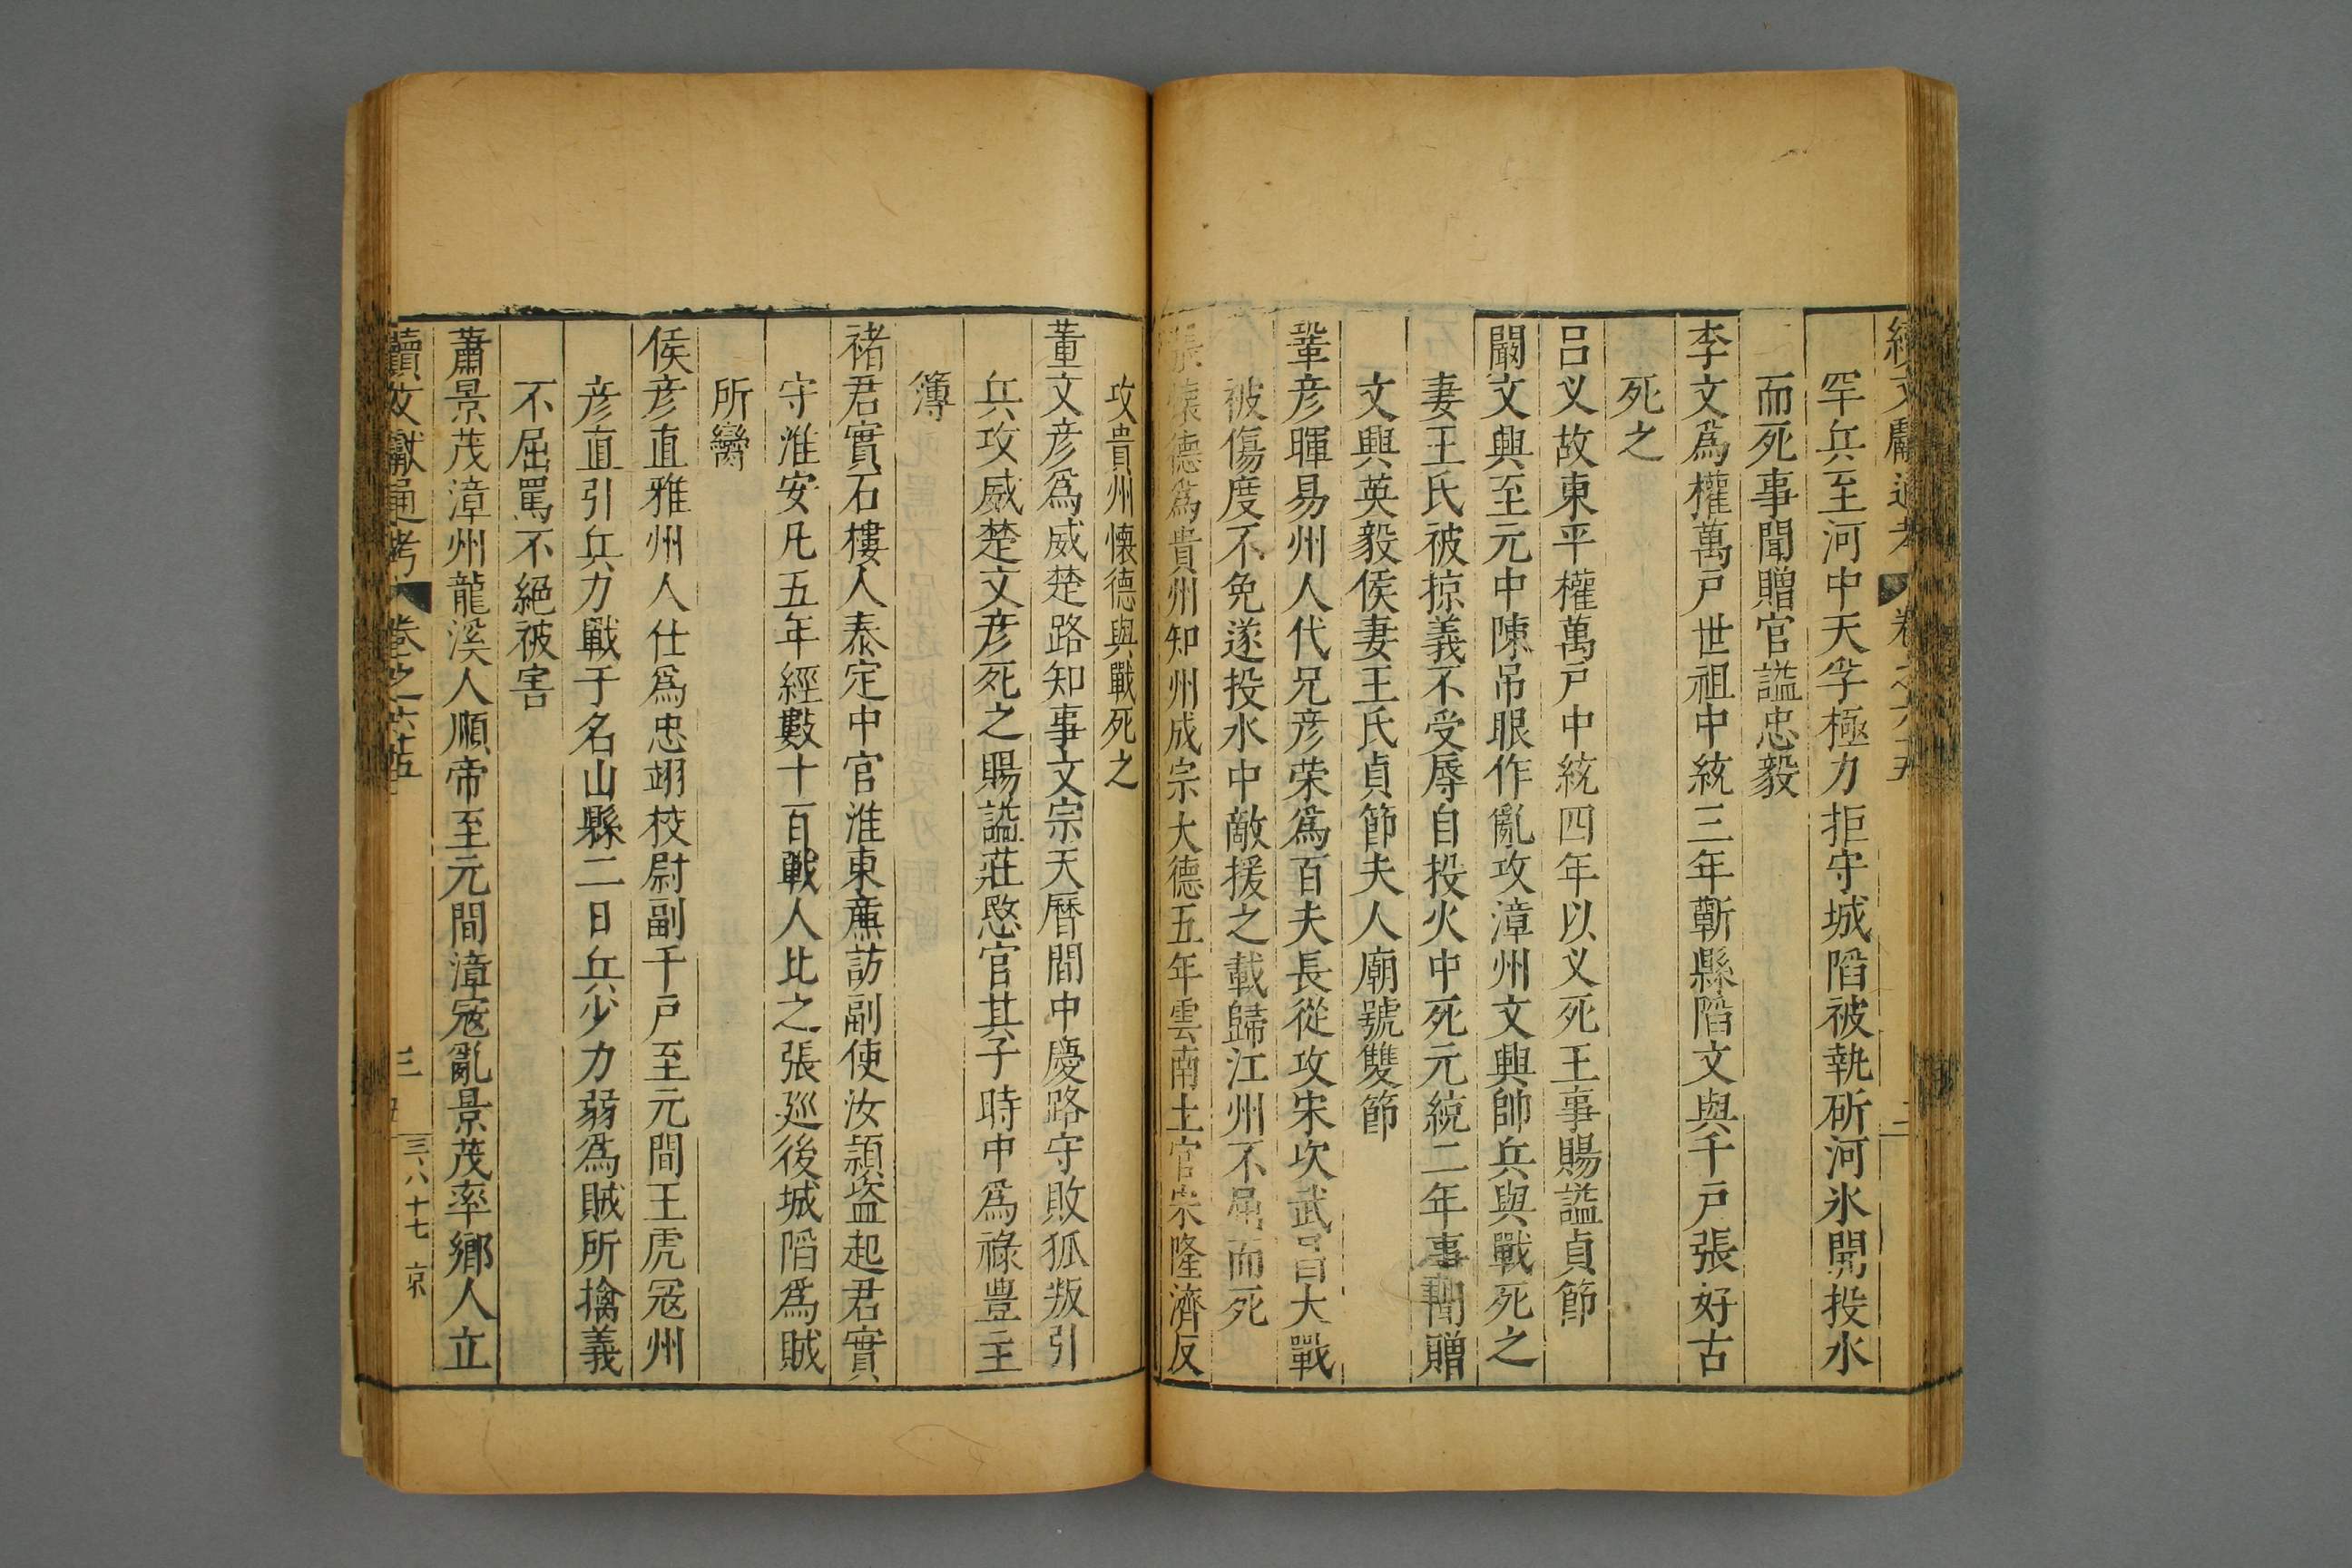 續文獻通考 卷之六五 二
罕兵至河中天孚極力拒守城陷被執斫河氷開投水
而死事聞贈官謚忠毅
李文爲權萬戶世祖中統三年蘄縣陷文與千戶張好古
死之
呂义故東平權萬戶中統四年以义死王事賜謚貞節
闞文興至元中陳吊眼作亂攻漳州文興帥兵與戰死之
妻王氏被掠義不受辱自投火中死元統二年事聞贈
文興英毅侯妻王氏貞節夫人廟號雙節
鞏彦暉易州人代兄彦荣爲百夫長從攻宋次武昌大戰
被傷度不免遂投水中敵援之載歸江州不屈而死
張懐德爲貴州知州成宗大德五年雲南土官宋隆濟反
攻貴州懐德與戰死之
董文彦爲威楚路知事文宗天曆間中慶路守敗狐叛引
兵攻威楚文彦死之賜謚莊愍官其子時中爲祿豊主
簿
禇君實石樓人泰定中官淮東亷訪副使汝頴盜起君實
守淮安凢五年經數十百戰人比之張廵後城陷爲賊
所臠
侯彦直雅州人仕爲忠翊校尉副千戶至元間王虎冦州
彦直引兵力戰于名山縣二日兵少力弱爲賊所擒義
不屈罵不絕被害
蕭景茂漳州龍溪人順帝至元間漳冦亂景茂率鄉人立
續文獻通考 卷之六十五 三 三八十七 京